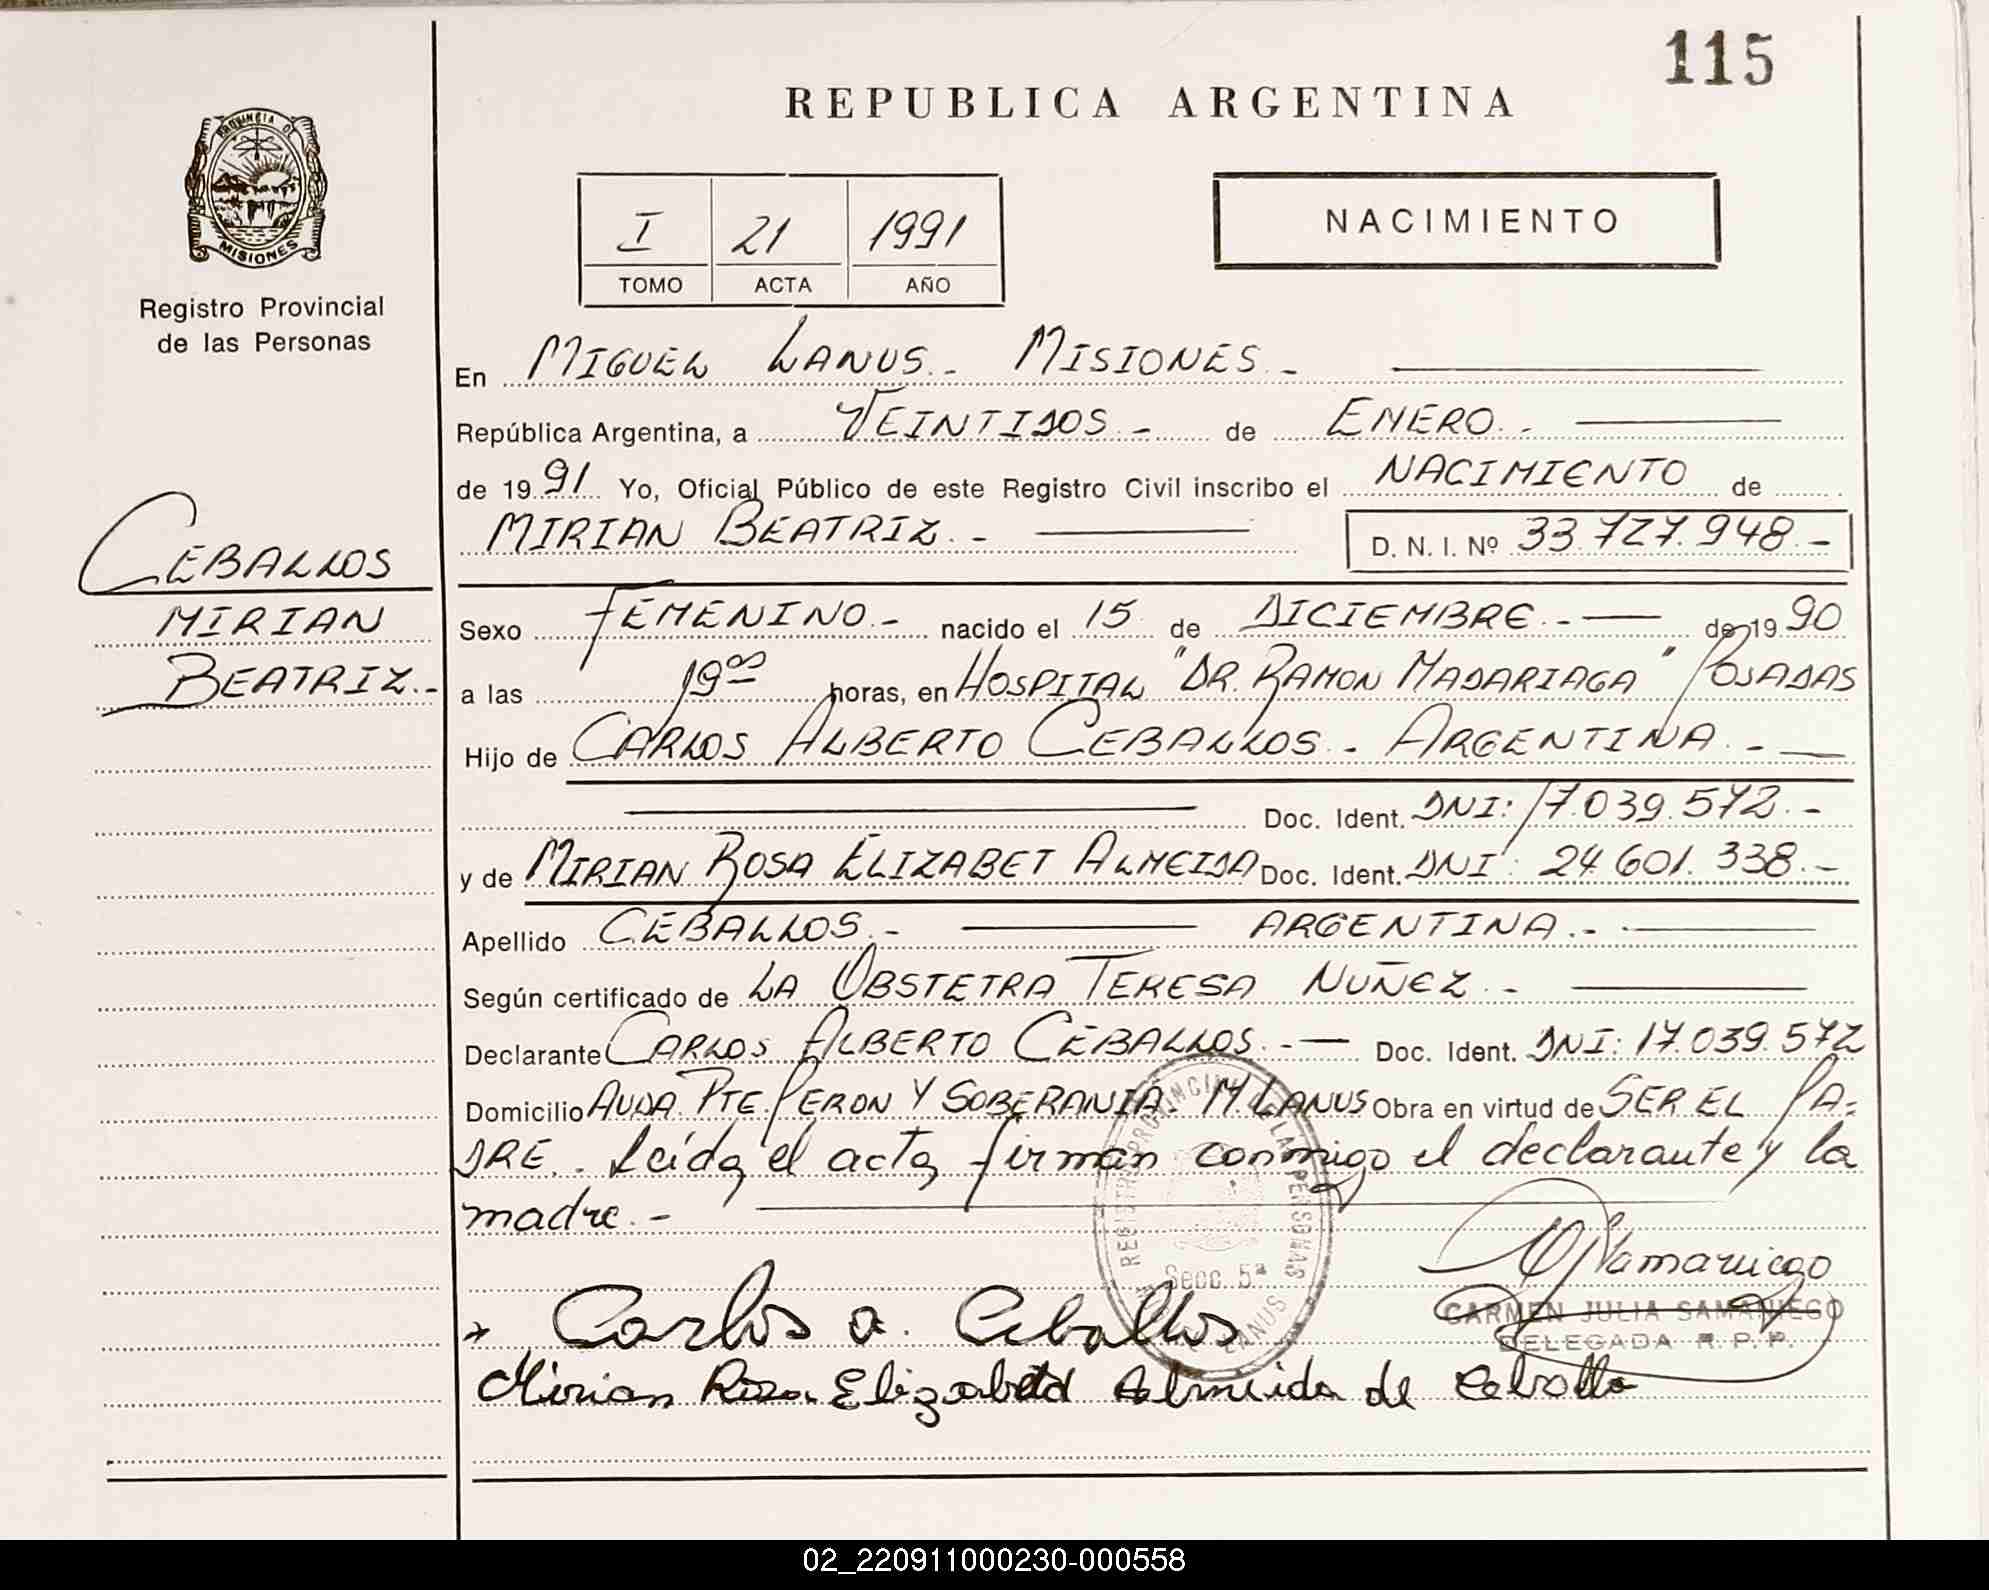 115
REPUBLICA ARGENTINA
PROVINCIA DE
MISIONES
Registro Provincial
de las Personas
I 21 1991
TOMO ACTA AÑO
NACIMIENTO
En MIGUEL LANUS.- MISIONES.-
República Argentina, a VEINTIDOS.- de ENERO.-
de 1991 Yo, Oficial Público de este Registro Civil inscribo el NACIMIENTO de
MIRIAN BEATRIZ.- D. N. I. Nº 33.727.948.-
CEBALLOS
MIRIAN
BEATRIZ.-
Sexo FEMENINO.- nacido el 15 de DICIEMBRE.- de 1990
a las 19 00 horas, en HOSPITAL "DR. RAMON MADARIAGA" POSADAS
Hijo de CARLOS ALBERTO CEBALLOS.- ARGENTINA.-
Doc. Ident. DNI: 17.039.572.-
y de MIRIAN ROSA ELIZABET ALMEIDA Doc. Ident. DNI: 24.601.338.-
Apellido CEBALLOS.- ARGENTINA.-
Según certificado de LA OBSTETRA TERESA NUÑEZ.-
Declarante CARLOS ALBERTO CEBALLOS.- Doc. Ident. DNI: 17.039.572
Domicilio AVDA. PTE. PERON Y SOBERANIA. M. LANUS Obra en virtud de SER EL PA-
DRE.. Leída el acta, firman conmigo el declarante y la
madre.-
REGISTRO PROVINCIAL DE LAS PERSONAS
Secc. 5ª
LANUS
CJSamaniego
CARMEN JULIA SAMANIEGO
DELEGADA R.P.P.
Carlos a. Ceballos
Mirian Rosa Elizabeth Almeida de Ceballo
02_220911000230-000558